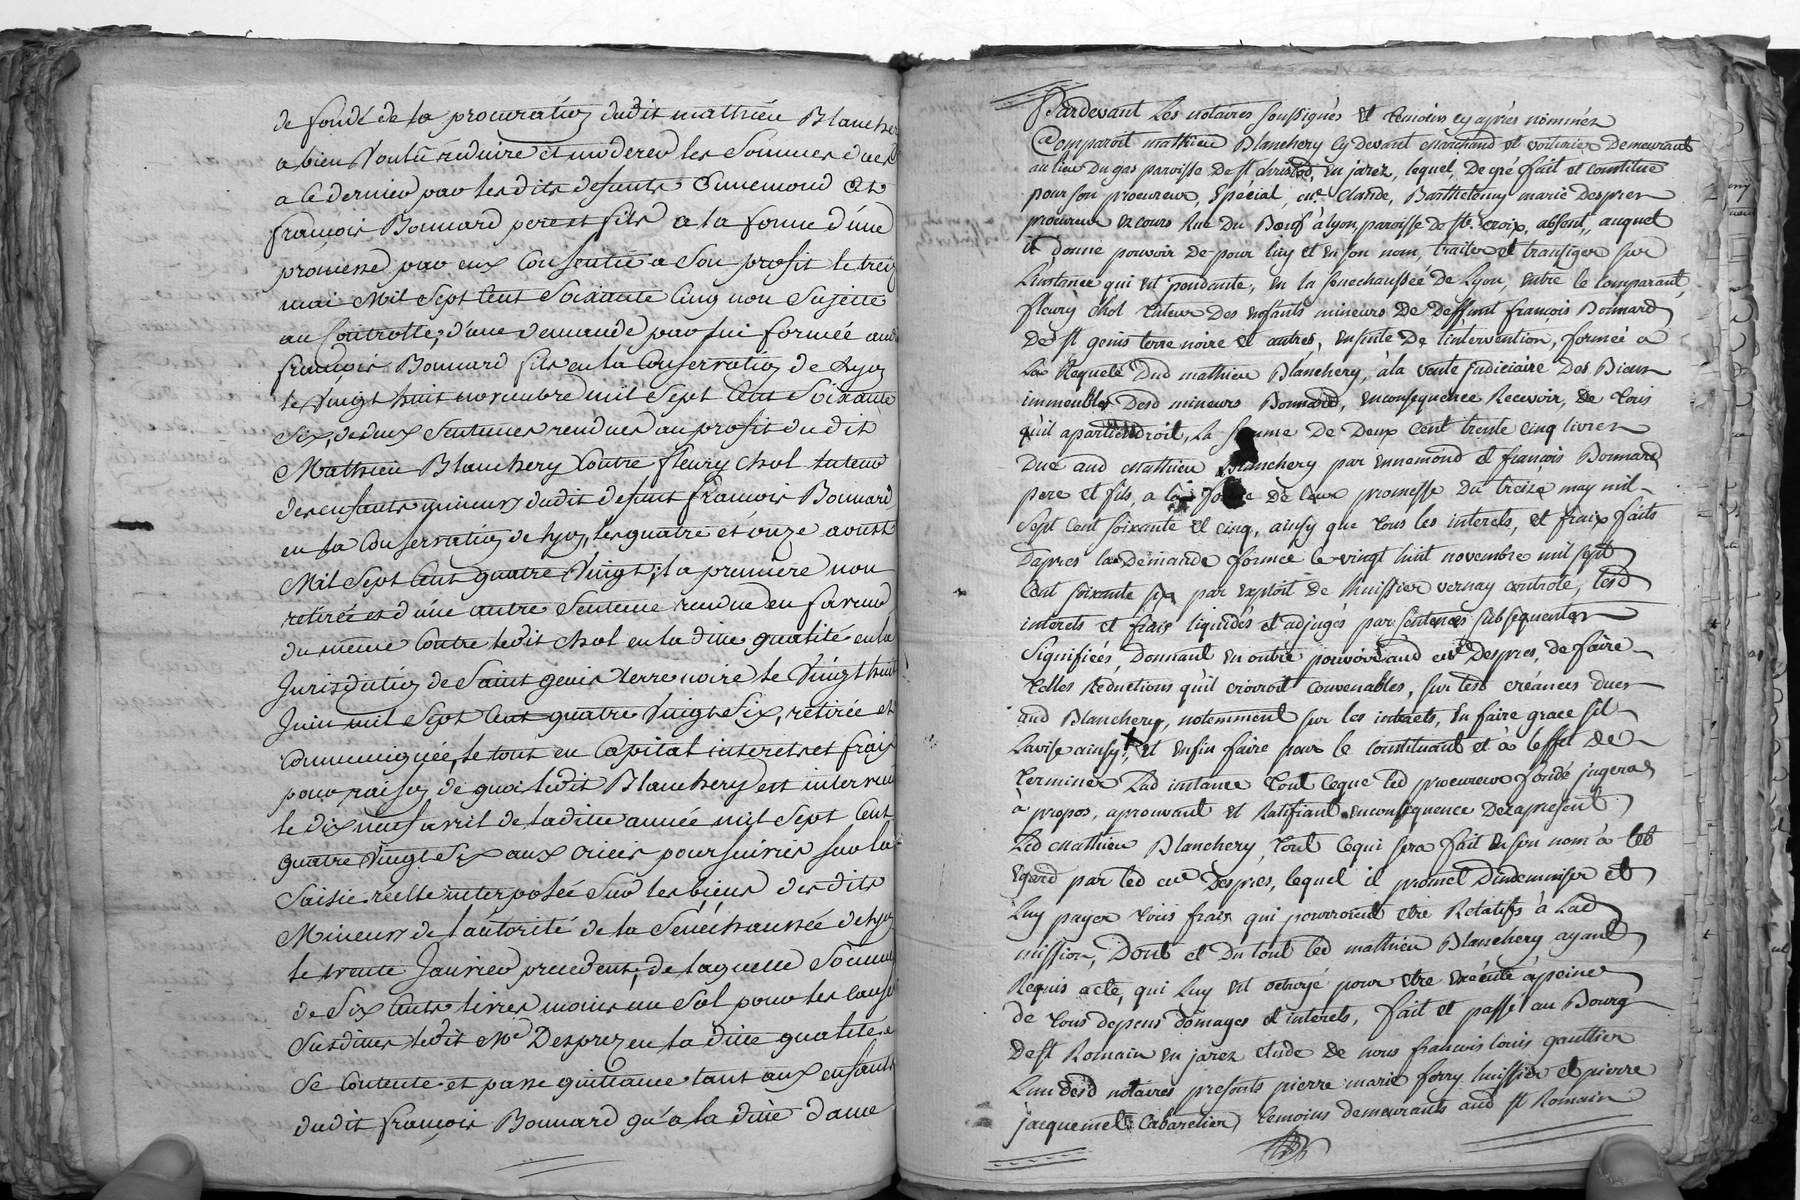 de fondé de la procuration dudit mathieu Blanchery
a bien voulu reduire et moderer les Sommes dues
a ce dernier par lesdits defunts Ennemond et
françois Bonnard pere et fils a la forme d'une
promesse par eux Consentie a Son profit le treize
mai Mil Sept Cent Soixante Cinq non Sujette
au Controlle, d'une demande par lui formée audit
françois Bonnard fils en la Conservation de Lyon
le Vingt huit novembre mil Sept Cent Soixante
Six, de deux Sentences rendues au profit dudit
Mathieu Blanchery Contre fleury Chol tuteur
des enfants mineurs dudit defunt françois Bonnard
en la Conservation de Lyon, les quatre et onze aoust
Mil Sept Cent quatre Vingt; la premiere non
retirée et d'une autre Sentence rendue en faveur
du meme Contre ledit Chol en la dite qualité en la
Jurisdiction de Saint genis terre noire le Vingt huit
Juin mil Sept Cent quatre Vingt Six, retirée et
Communiquée, le tout en Capital interets et frais
pour raison de quoi ledit Blanchery est intervenu
le dix neuf avril de ladite année mil Sept Cent
quatre Vingt Six aux criées poursuivies sur la
Saisie réelle interposée Sur les biens desdits
Mineurs de l'autorité de la Sénéchaussée de Lyon
le trente Janvier precedent, de laquelle Somme
de Six Cents livres moins un Sol pour les causes
Susdites ledit Me Desprez en la dite qualité
Se Contente et passe quittance tant aux enfants
dudit françois Bonnard qu'a la dite dame
Pardevant Les notaires soussignés et temoins cy après nommés
Comparoit mathieu Blanchery cy devant marchand et voiturier Demeurant
au lieu Du gas paroisse de st christod, en jarez, lequel, De gré fait et constitue
pour son procureur, spécial, me. claude, Barthelemy marie despres
procureur ez cours Rue Du Bœuf à lyon, paroisse de ste. croix, absent, auquel
il donne pouvoir de pour luy et en son nom, traiter et transiger sur
Linstance qui est pendante, en la senechaussée de Lyon, entre le comparant,
fleury chol tuteur Des enfants mineurs De Deffunt françois Bonnard
De st genis terre noire et autres, ensuite De l'intervention, formée à
La Requete Dud mathieu Blanchery, à la vente judiciaire Des Biens
immeubles Desd mineurs Bonnard, en consequence Recevoir, de tous
qu'il apartiendroit, La somme De Deux cent trente cinq livres
Due aud mathieu Blanchery par ennemond et françois Bonnard
pere et fils, a la forme de leur promesse Du treize may mil
Sept cent soixante et cinq, ainsy que tous les interets, et fraix faits
Dapres la Demande formée le vingt huit novembre mil sept
Cent soixante six par exploit de lhuissier vernay controlé, lesd
interets et frais liquidés et adjugés par sentences subsequentes
Signifiées, Donnant en outre pouvoir aud me Despres, de faire
telles Reductions qu'il croiroit convenables, sur lesd créances dues
aud Blanchery, notemment sur les interets, en faire grace sil
Lavise ainsy, et enfin faire pour le constituant et à leffet de
terminer Lad instance tout ceque led procureur fondé jugera
à propos, aprouvant et Ratifiant en consequence Dezapresent
Led Mathieu Blanchery, tout ce qui sera fait en son nom à cet
egard par led me Despres, lequel il promet D'indemniser et
Luy payer tous frais qui pourroient etre Relatifs à Lad
mission, Dont et Du tout led mathieu Blanchery ayant
Requis acte, qui Luy est octroyé pour etre executé à peine
de tous depens domages et interets, fait et passé au Bourg
de st Romain en jarez etude de nous francois louis gaultier
Lun desd notaires presents pierre marie forry huissier et pierre
jacquemet Cabaretier temoins demeurants aud st Romain